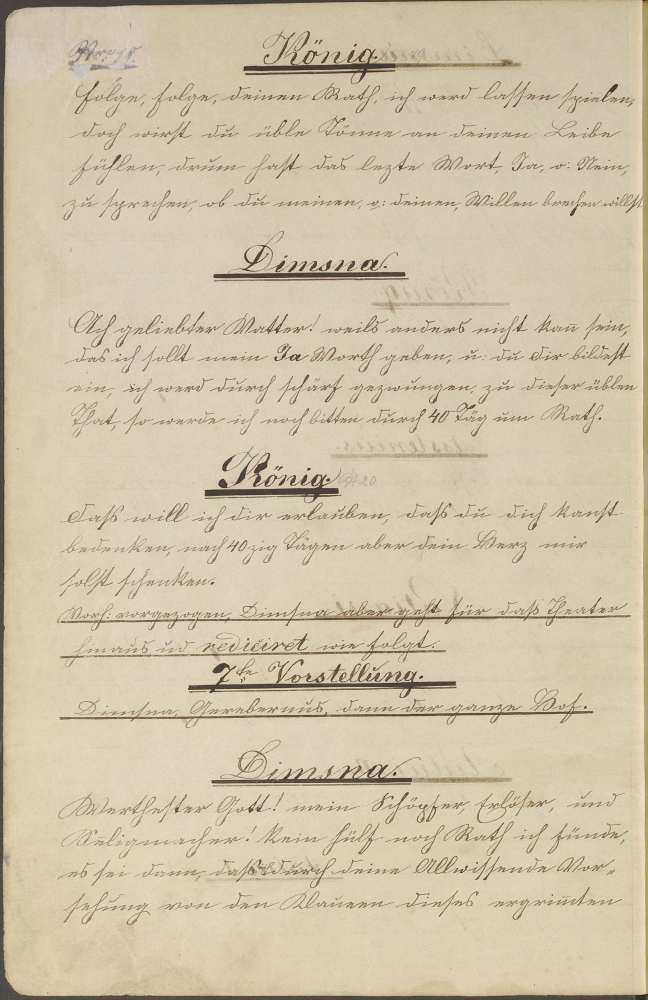 König.
Folge, folge, deinen Rath, ich werd lassen spielen,
doch wirst du üble Tönne an deinen Leibe
fühlen, drum hast das lezte Wort, Ja, o: Nein,
zu sprechen, ob du meinen, o: deinen, Willen brechen willst.
Dimsna.
Ach geliebter Vatter! weils anders nicht kan̄ sein,
das ich sollt mein Ja Worth geben, u: du dir bildest
ein, ich werd durch schärf gezwungen, zu dieser üblen
That, so werde ich noch bitten durch 40 Täg um Rath.
König.
Dass will ich dir erlauben, dass du dich kanst
bedenken, nach 40zig Tägen aber dein Herz mir
solst schenken.
Vorh: vorgezogen, Dimsna aber geht für dass Theater
hinaus ud rediciret wie folgt.
7te Vorstellung.
Dimsna, Gerebernus, dann der ganze Hof.
Dimsna.
Werthester Gott! mein Schöpfer, Erlöser, und
Seligmacher! kein hülf noch Rath ich fünde,
es sei dann, dass durch deine Allwissende Vor-
sehung von den Klaueen dieses ergrimten